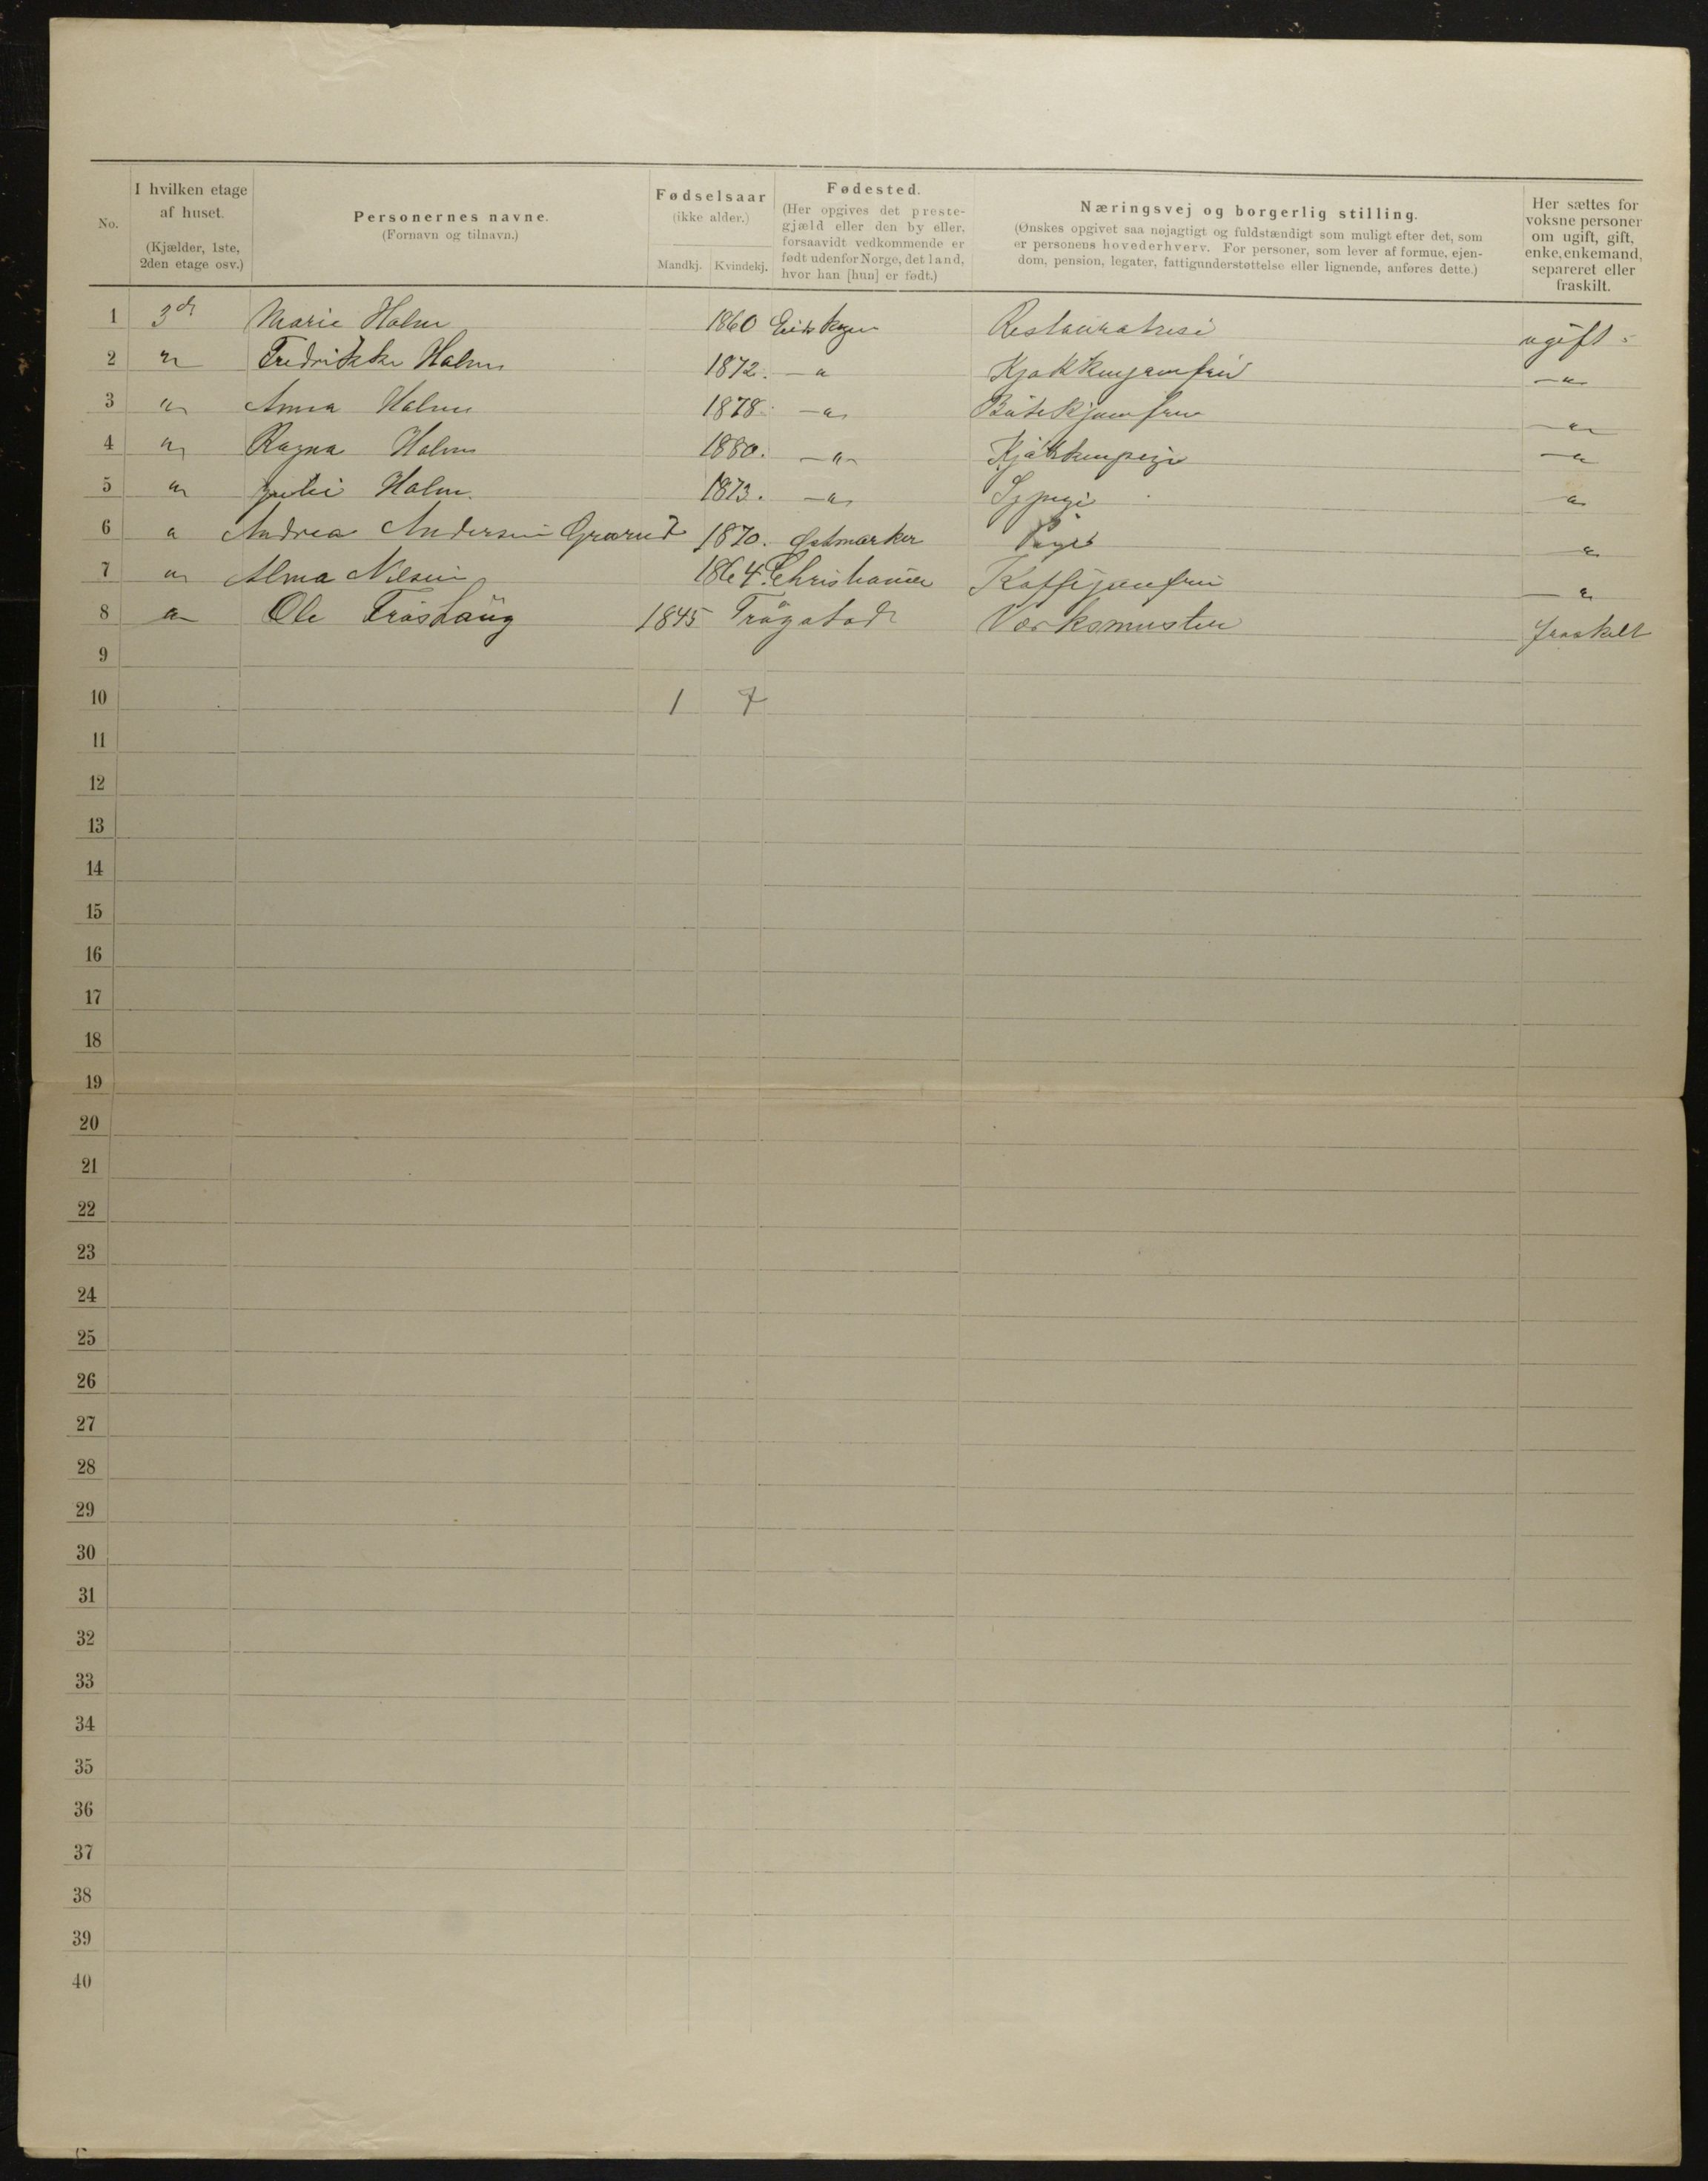 No.
I hvilken etage af huset.
(Kjælder, 1ste, 2den etage osv.)
Personernes navne.
(Fornavn og tilnavn.)
Fødselsaar
(ikke alder.)
Mandkj. Kvindekj.
Fødested.
(Her opgives det prestegjæld eller den by eller, forsaavidt vedkommende er født udenfor Norge, det land, hvor han [hun] er født.)
Næringsvej og borgerlig stilling.
(Ønskes opgivet saa nøjagtigt og fuldstændigt som muligt efter det, som er personens hovederhverv. For personer, som lever af formue, ejendom, pension, legater, fattigunderstøttelse eller lignende, anføres dette.)
Her sættes for voksne personer om ugift, gift, enke, enkemand, separeret eller fraskilt.
1 3d Marie Holm 1860 Restauratrise ugift
2 " Fredrikke Holm 1872. — " Kjøkkenjomfru — "
3 " Anna Holm 1878. — " — "
4 " Ragna Holm 1880. — " Kjøkkenpige — "
5 " Holm. 1873. — " Sypige "
6 " Andrea Andersen Grorud 1870. Østmarker Pige "
7 " Alma Nilsen 1864. Christiania Kaffejomfru — "
8 " Ole Frøshaug 1845 Trøgstad Værksmester fraskilt
9
10 1 7
11
12
13
14
15
16
17
18
19
20
21
22
23
24
25
26
27
28
29
30
31
32
33
34
35
36
37
38
39
40